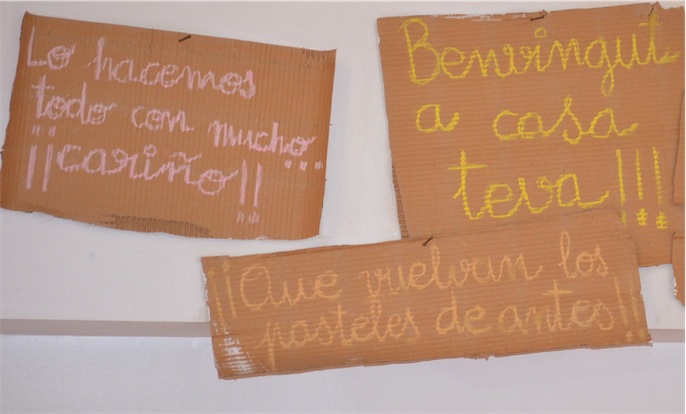 Lo hacemos
todo con mucho...
¡¡cariño!!
Benvingut
a casa
teva!!!
¡¡Que vuelvan los
pasteles de antes!!